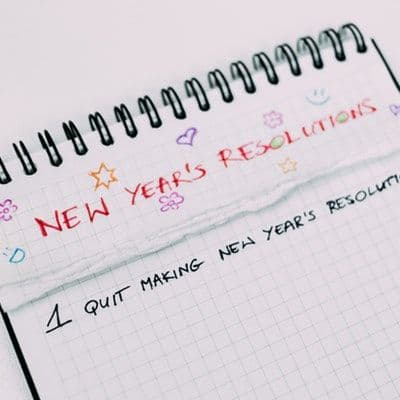 NEW YEAR'S RESOLUTIONS
1 QUIT MAKING NEW YEAR'S